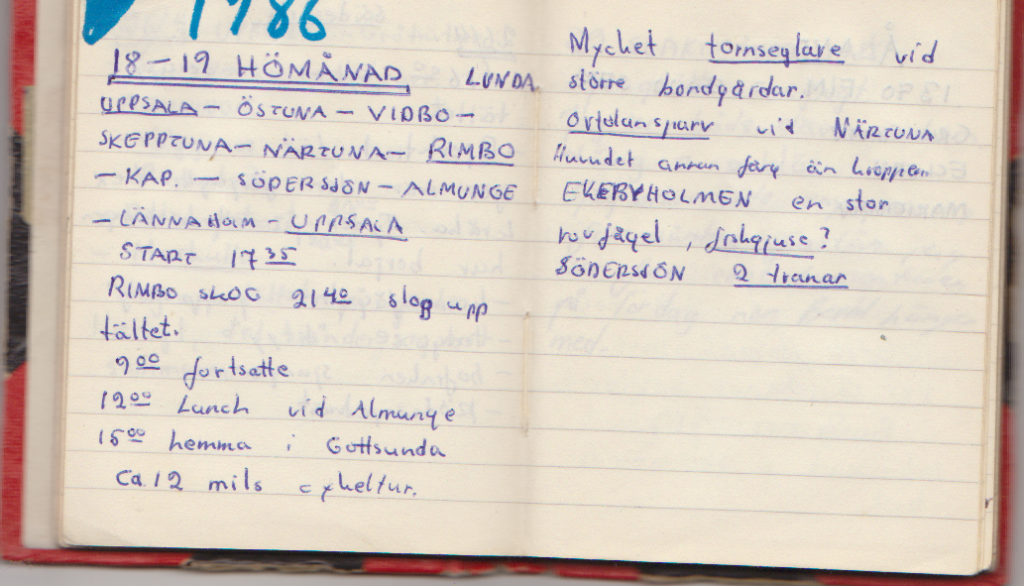 1986
18-19 HÖMÅNAD LUNDA
UPPSALA - ÖSTUNA - VIDBO -
SKEPPTUNA - NÄRTUNA - RIMBO
- KAP. - SÖDERSJÖN - ALMUNGE
- LÄNNAHOLM - UPPSALA
START 17 35
RIMBO SKOG 21 40 slog upp
tältet.
9 00 fortsatte
12 00 Lunch vid Almunge
15 00 hemma i Gottsunda
Ca. 12 mils cykeltur.
Mycket tornseglare vid
större bondgårdar.
Ortolansparv vid NÄRTUNA
Huvudet annan färg än kroppen
EKEBYHOLMEN en stor
rovfågel, fiskgjuse?
SÖDERSJÖN 2 tranar